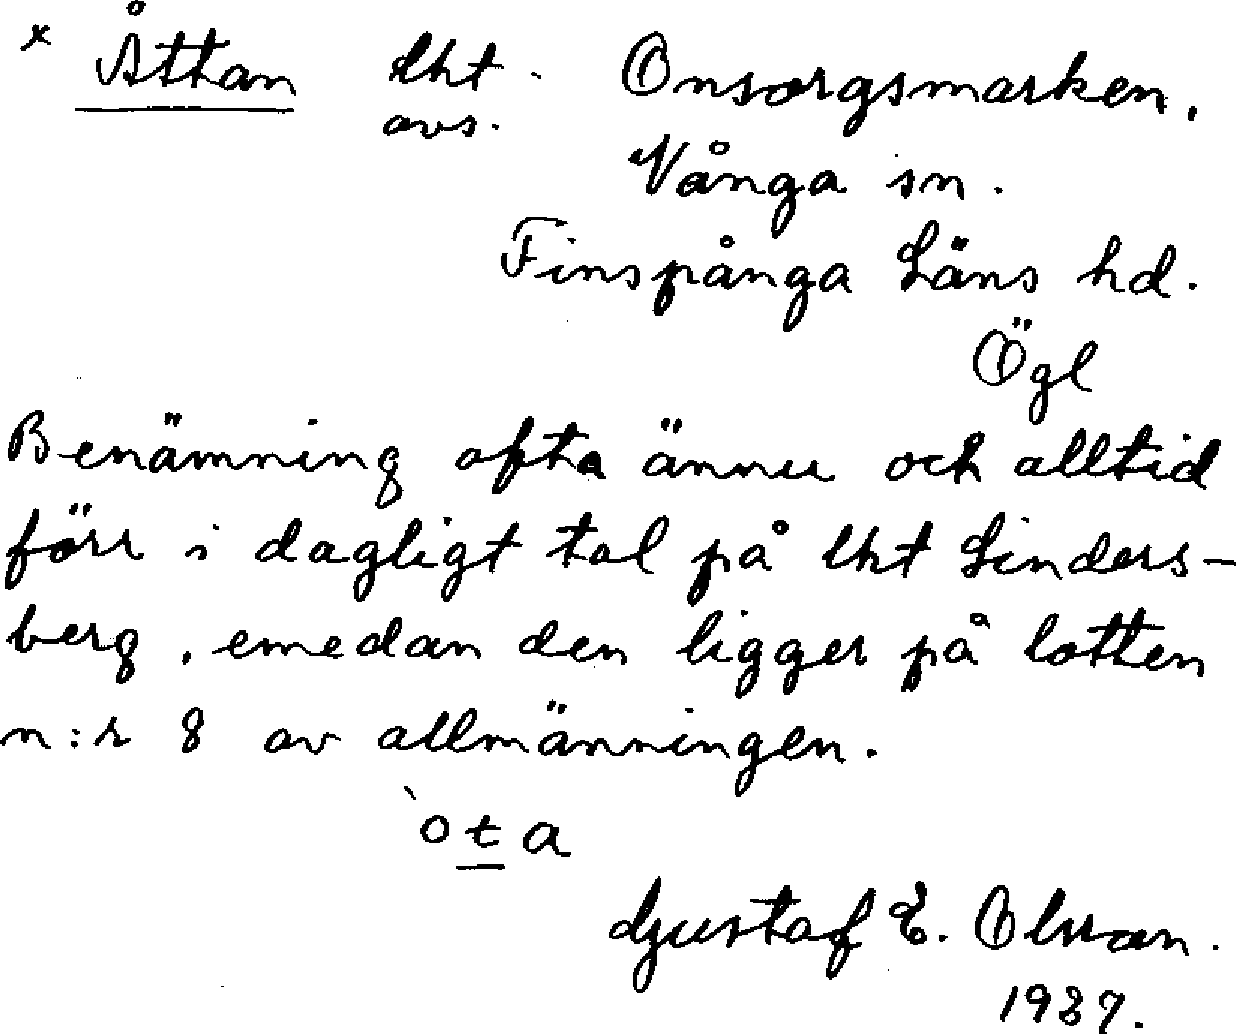 x Åttan lht. Onsorgsmarken,
avs.
Vånga sn.
Finspånga Läns hd.
Ögl
Benämning ofta ännu och alltid
förr i dagligt tal på lht Linders-
berg, emedan den ligger på lotten
n:r 8 av allmänningen.
`o̲t̲a
Gustaf E. Olsson.
1937.